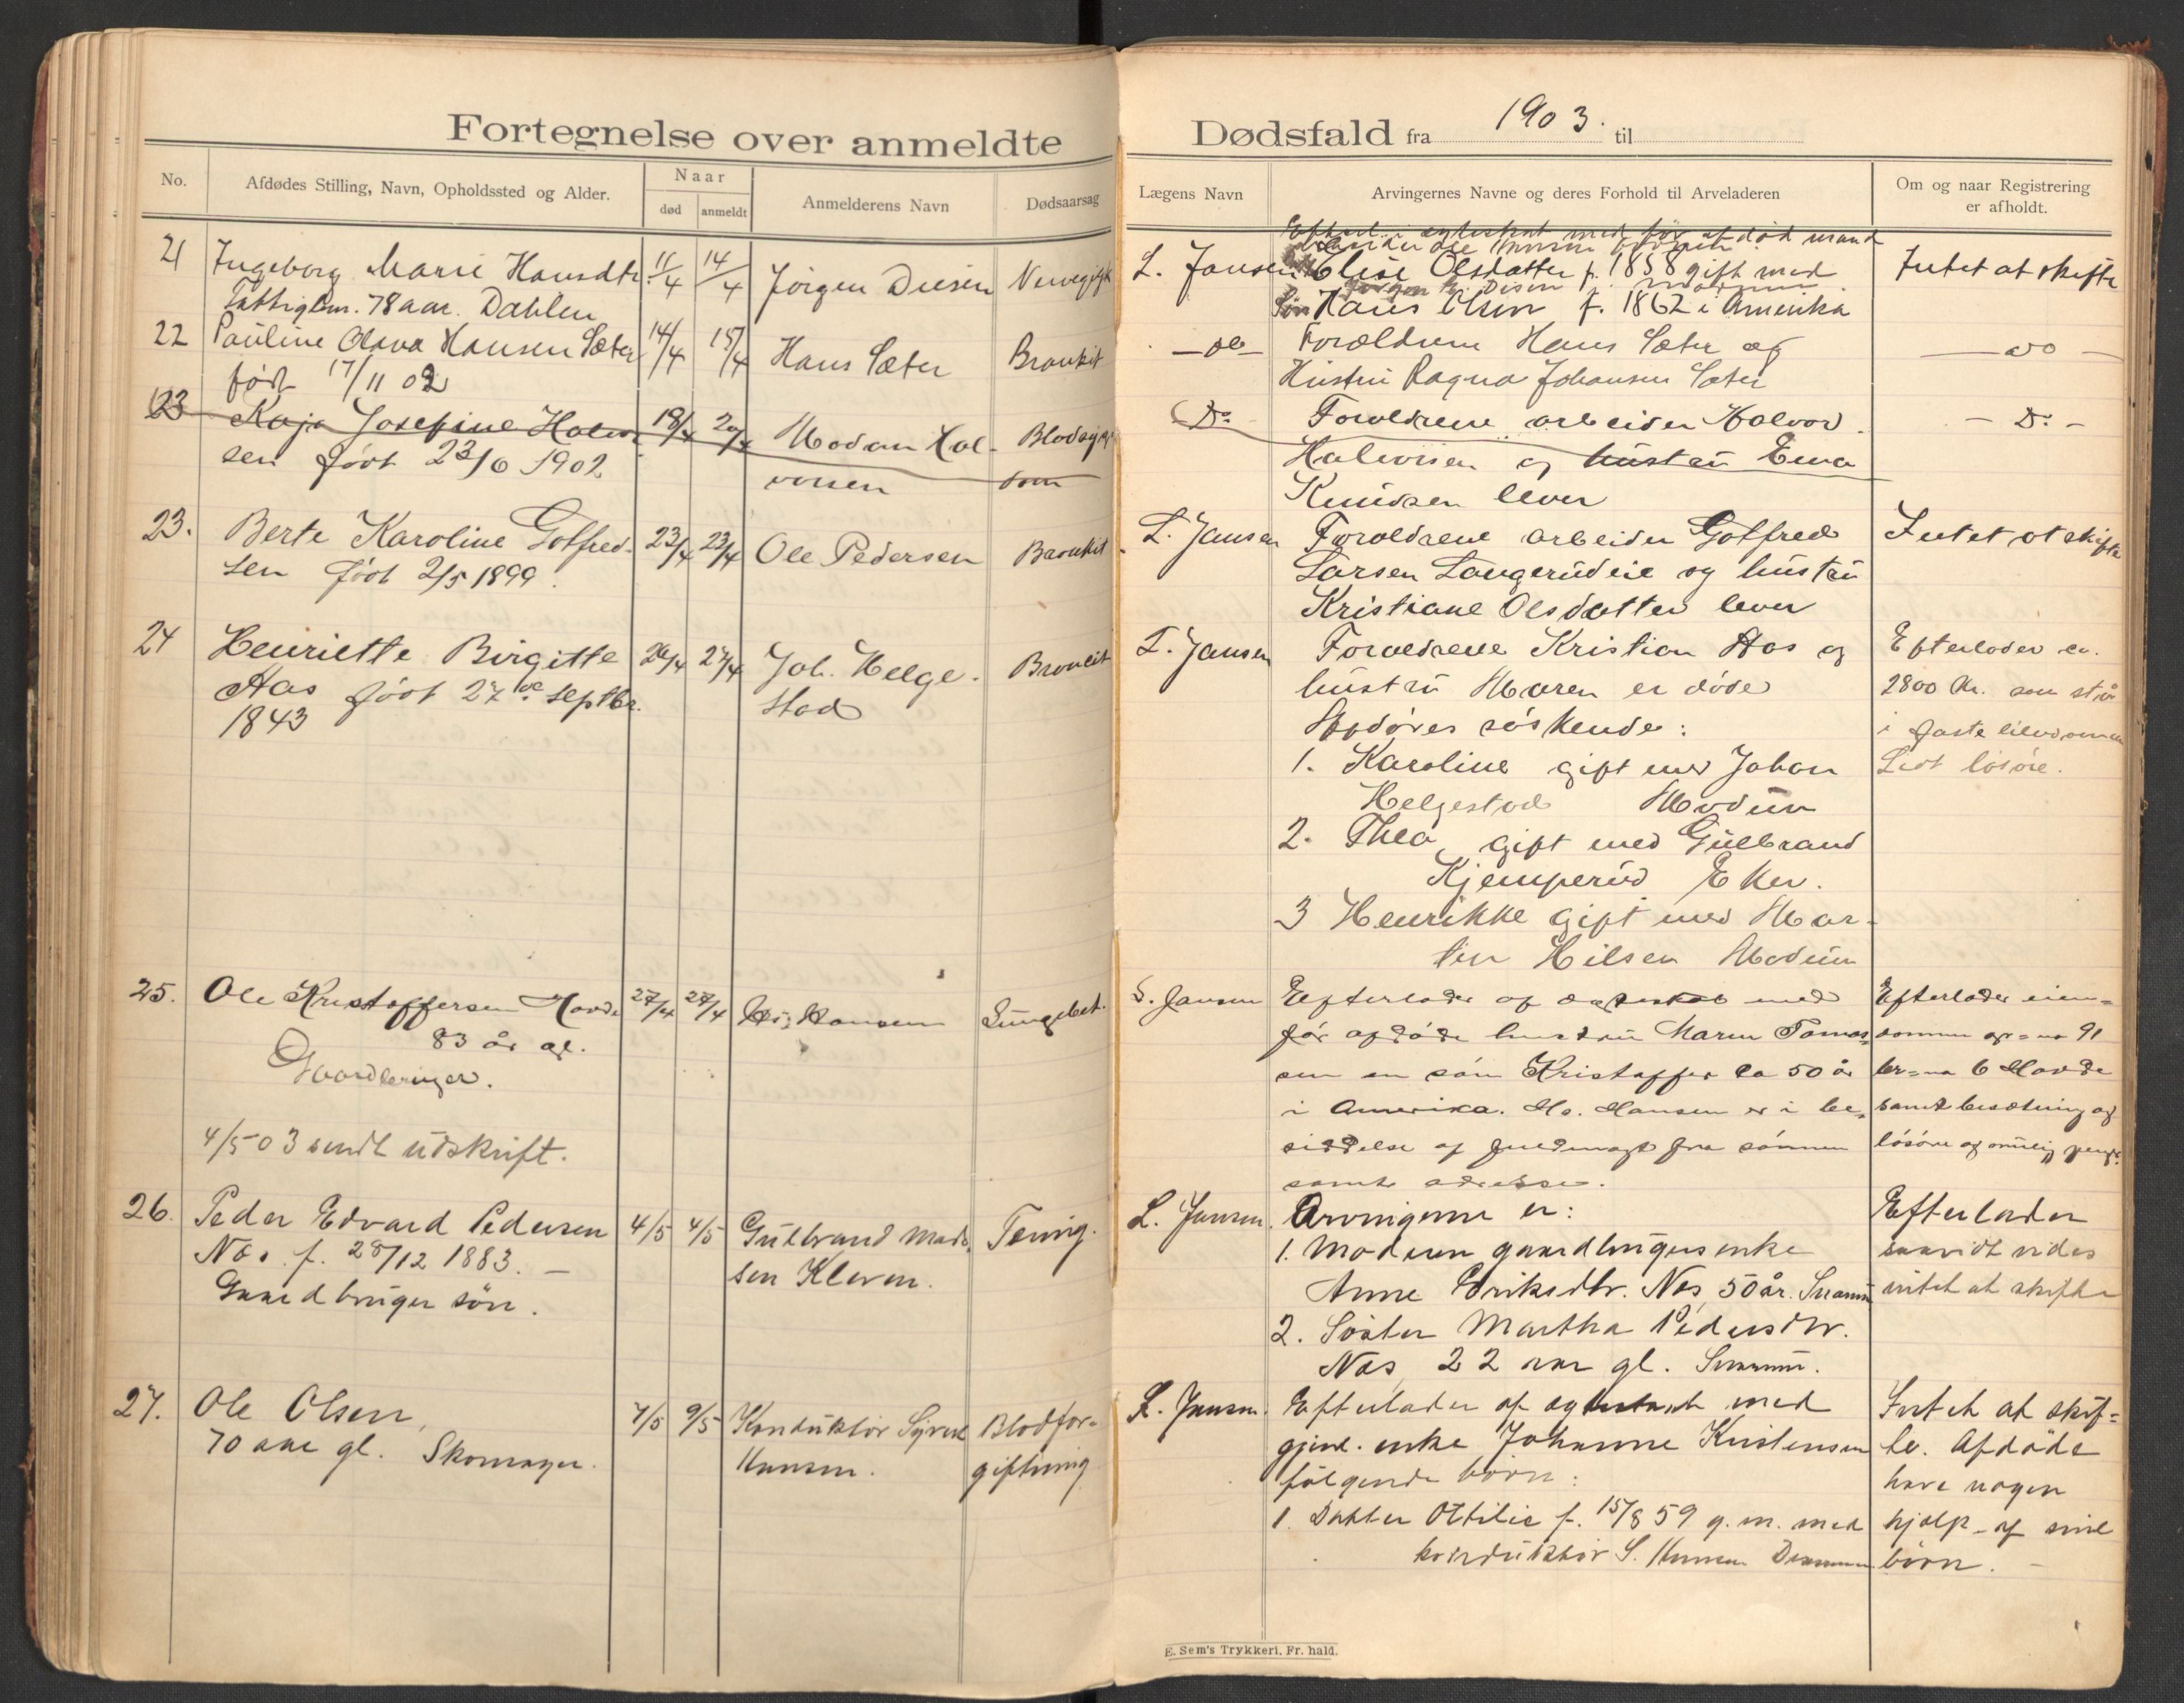 Fortegnelse over anmeldte
No.
Afdødes Stilling, Navn, Opholdssted og Alder.
Naar
død
anmeldt
Anmelderens Navn
Dødsaarsag
21
Ingeborg Marie Hansdtr
Fattiglm. 78 aar. Dahlen
11/4
14/4
Jörgen Diesen
22
Pauline Olava Hansen Sæter
født 17/11 02
14/4
15/4
Hans Sæter
Bronkit
23
Kaja Josefine Halvor
sen født 23/6 1902
18/4
20/4
Halvorsen
23.
Berte Karoline Gotfred-
sen født 2/5 1899.
23/4
23/4
Ole Pedersen
Bronkit
24
Henriette Birgitte
Aas født 27de Septbr.
1843
26/4
27/4
Joh. Helge-
stad
25.
Ole Kristoffersen Hovde
83 år gl.
Gaardbruger.
27/4
27/4
Hansen
Lungebet.
4/5 03 sendt udskrift.
26.
Peder Edvard Pedersen
Næs. f. 28/12 1883. —
Gaardbruger sön.
4/5
4/5
Gulbrand Mad-
sen Kleven.
Tæring.
27.
Ole Olsen,
70 aar gl. Skomager.
7/5
9/5
Konduktör
Hansen.
Blodfor-
giftning
Dødsfald fra 1903. til
Lægens Navn
Arvingernes Navne og deres Forhold til Arveladeren
Om og naar Registrering
er afholdt.
L. Jansen
med før afdød mand
Elise Olsdatter f. 1858 gift med
Sön Hans Olsen f. 1862 i Amerika
Intet at skifte
— do —
Forældrene Hans Sæter og
Hustru Ragna Johansen Sæter
— do —
Do
Forældrene arbeider Halvor
Halvorsen og hustru
Knudsen lever
— Do —
L. Jansen
Forældrene arbeider Gotfred
Larsen Langerudeie og hustru
Kristiane Olsdatter lever
Intet at skifte
L. Jansen
Forældrene Kristian Aas og
hustru Maren er døde
Afdødes søskende:
1. Karoline gift med Johan
Helgestad Modum
2. Thea, gift med Gulbrand
Kjemperud Eker.
3 Henrikke gift med Mar-
tin Hilsen Modum
Efterlader ca.
2800 Kr. som står
i faste eiendommen
Lidt løsøre.
L. Jansen
Efterlader af ægteskab med
før afdøde hustru Maren Tomas-
sen en søn Kristoffer ca 50 år
i Amerika. Hs. Hansen er i be-
siddelse af fuldmagt fra sønnen
samt adresse.
Efterlader eien-
dommen gr-no 91
br-no 6 Hovde
samt besætning og
løsøre og penge.
L. Jansen.
Arvingerne er:
1. Moderen gaardbrugerenke
Anne Eriksdtr. Næs, 50 år.
2. Søster Martha Pedersdtr.
Næs, 22 aar gl.
Efterlader
saavidt vides
intet at skifte
L. Jansen.
Efterlader af ægteskab med
gjenl. enke Johanne Kristensen
følgende børn:
1. Datter Ottilie f. 15/8 59 g. m. med
konduktör S. Hansen
Intet at skif-
te. Afdöde
have nogen
hjælp af sine
börn. —
E. Sem's Trykkeri, Fr. hald.